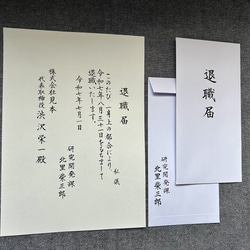 退職届
私儀
このたび一身上の都合により、
令和七年八月三十一日をもちまして
退職いたします。
令和七年七月一日
研究開発課
北里栄三郎
株式会社見本
代表取締役 渋沢栄一 殿
退職届
研究開発課
北里栄三郎